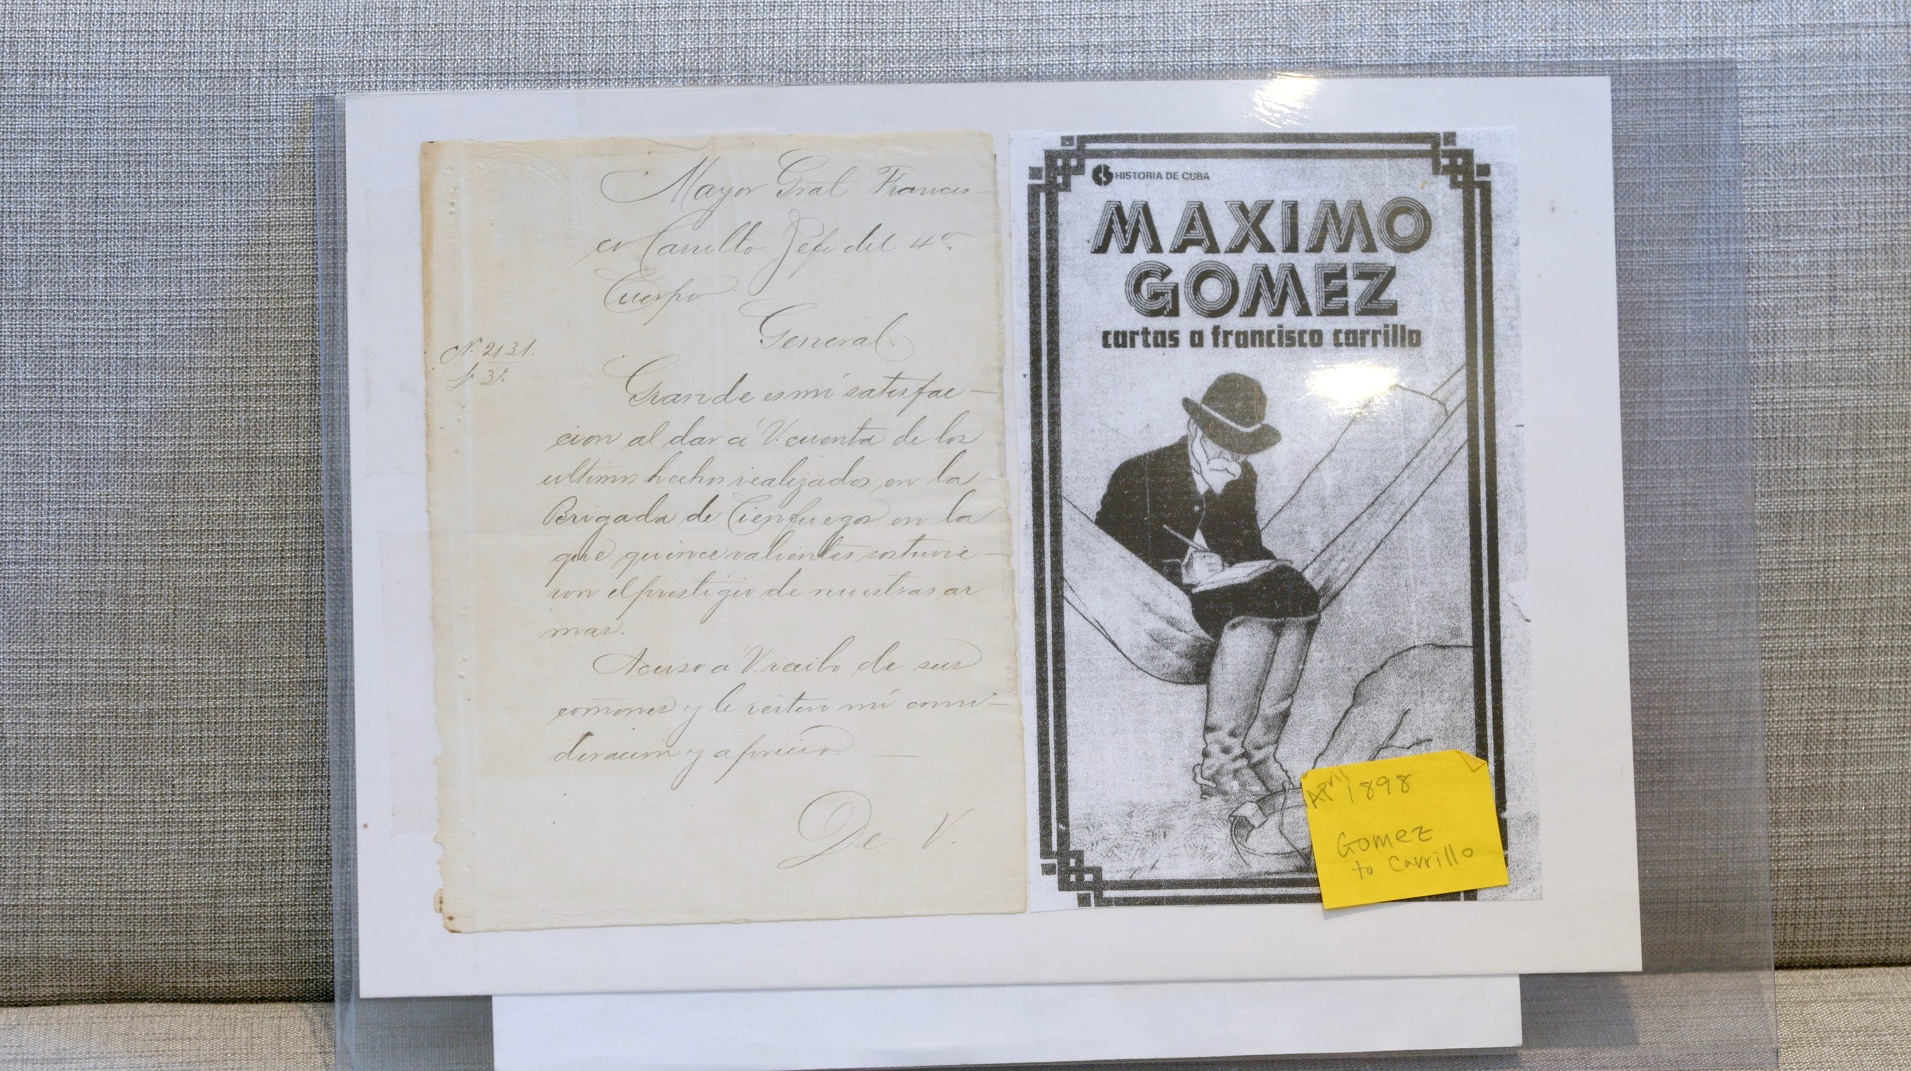 Mayor Gral Francis-
co Carrillo Jefe del 4º
Cuerpo
General
N. 2131.
L. 3º.
Grande es mi satisfac-
cion al dar á V. cuenta de los
ultimos hechos realizados en la
Brigada de Cienfuegos en la
que quince valientes sostuvie-
ron el prestigio de nuestras ar
mas.
Acuso á V. recibo de sus
comones y le reitero mi consi-
deracion y aprecio.
De V.
HISTORIA DE CUBA
MAXIMO
GOMEZ
cartas a francisco carrillo
April 1898
Gomez
to Carrillo